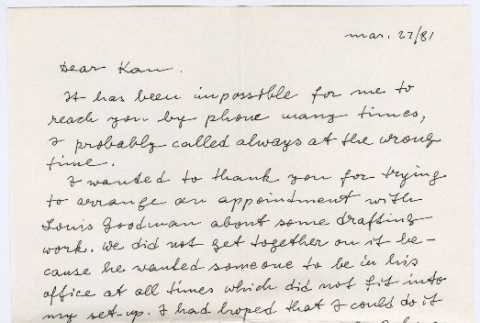 mar. 27/81
Dear Kan.
It has been impossible for me to
reach you by phone many times,
I probably called always at the wrong
time.
I wanted to thank you for trying
to arrange an appointment with
Louis Goodman about some drafting
work. We did not get together on it be-
cause he wanted someone to be in his
office at all times which did not fit into
my set-up. I had hoped that I could do it